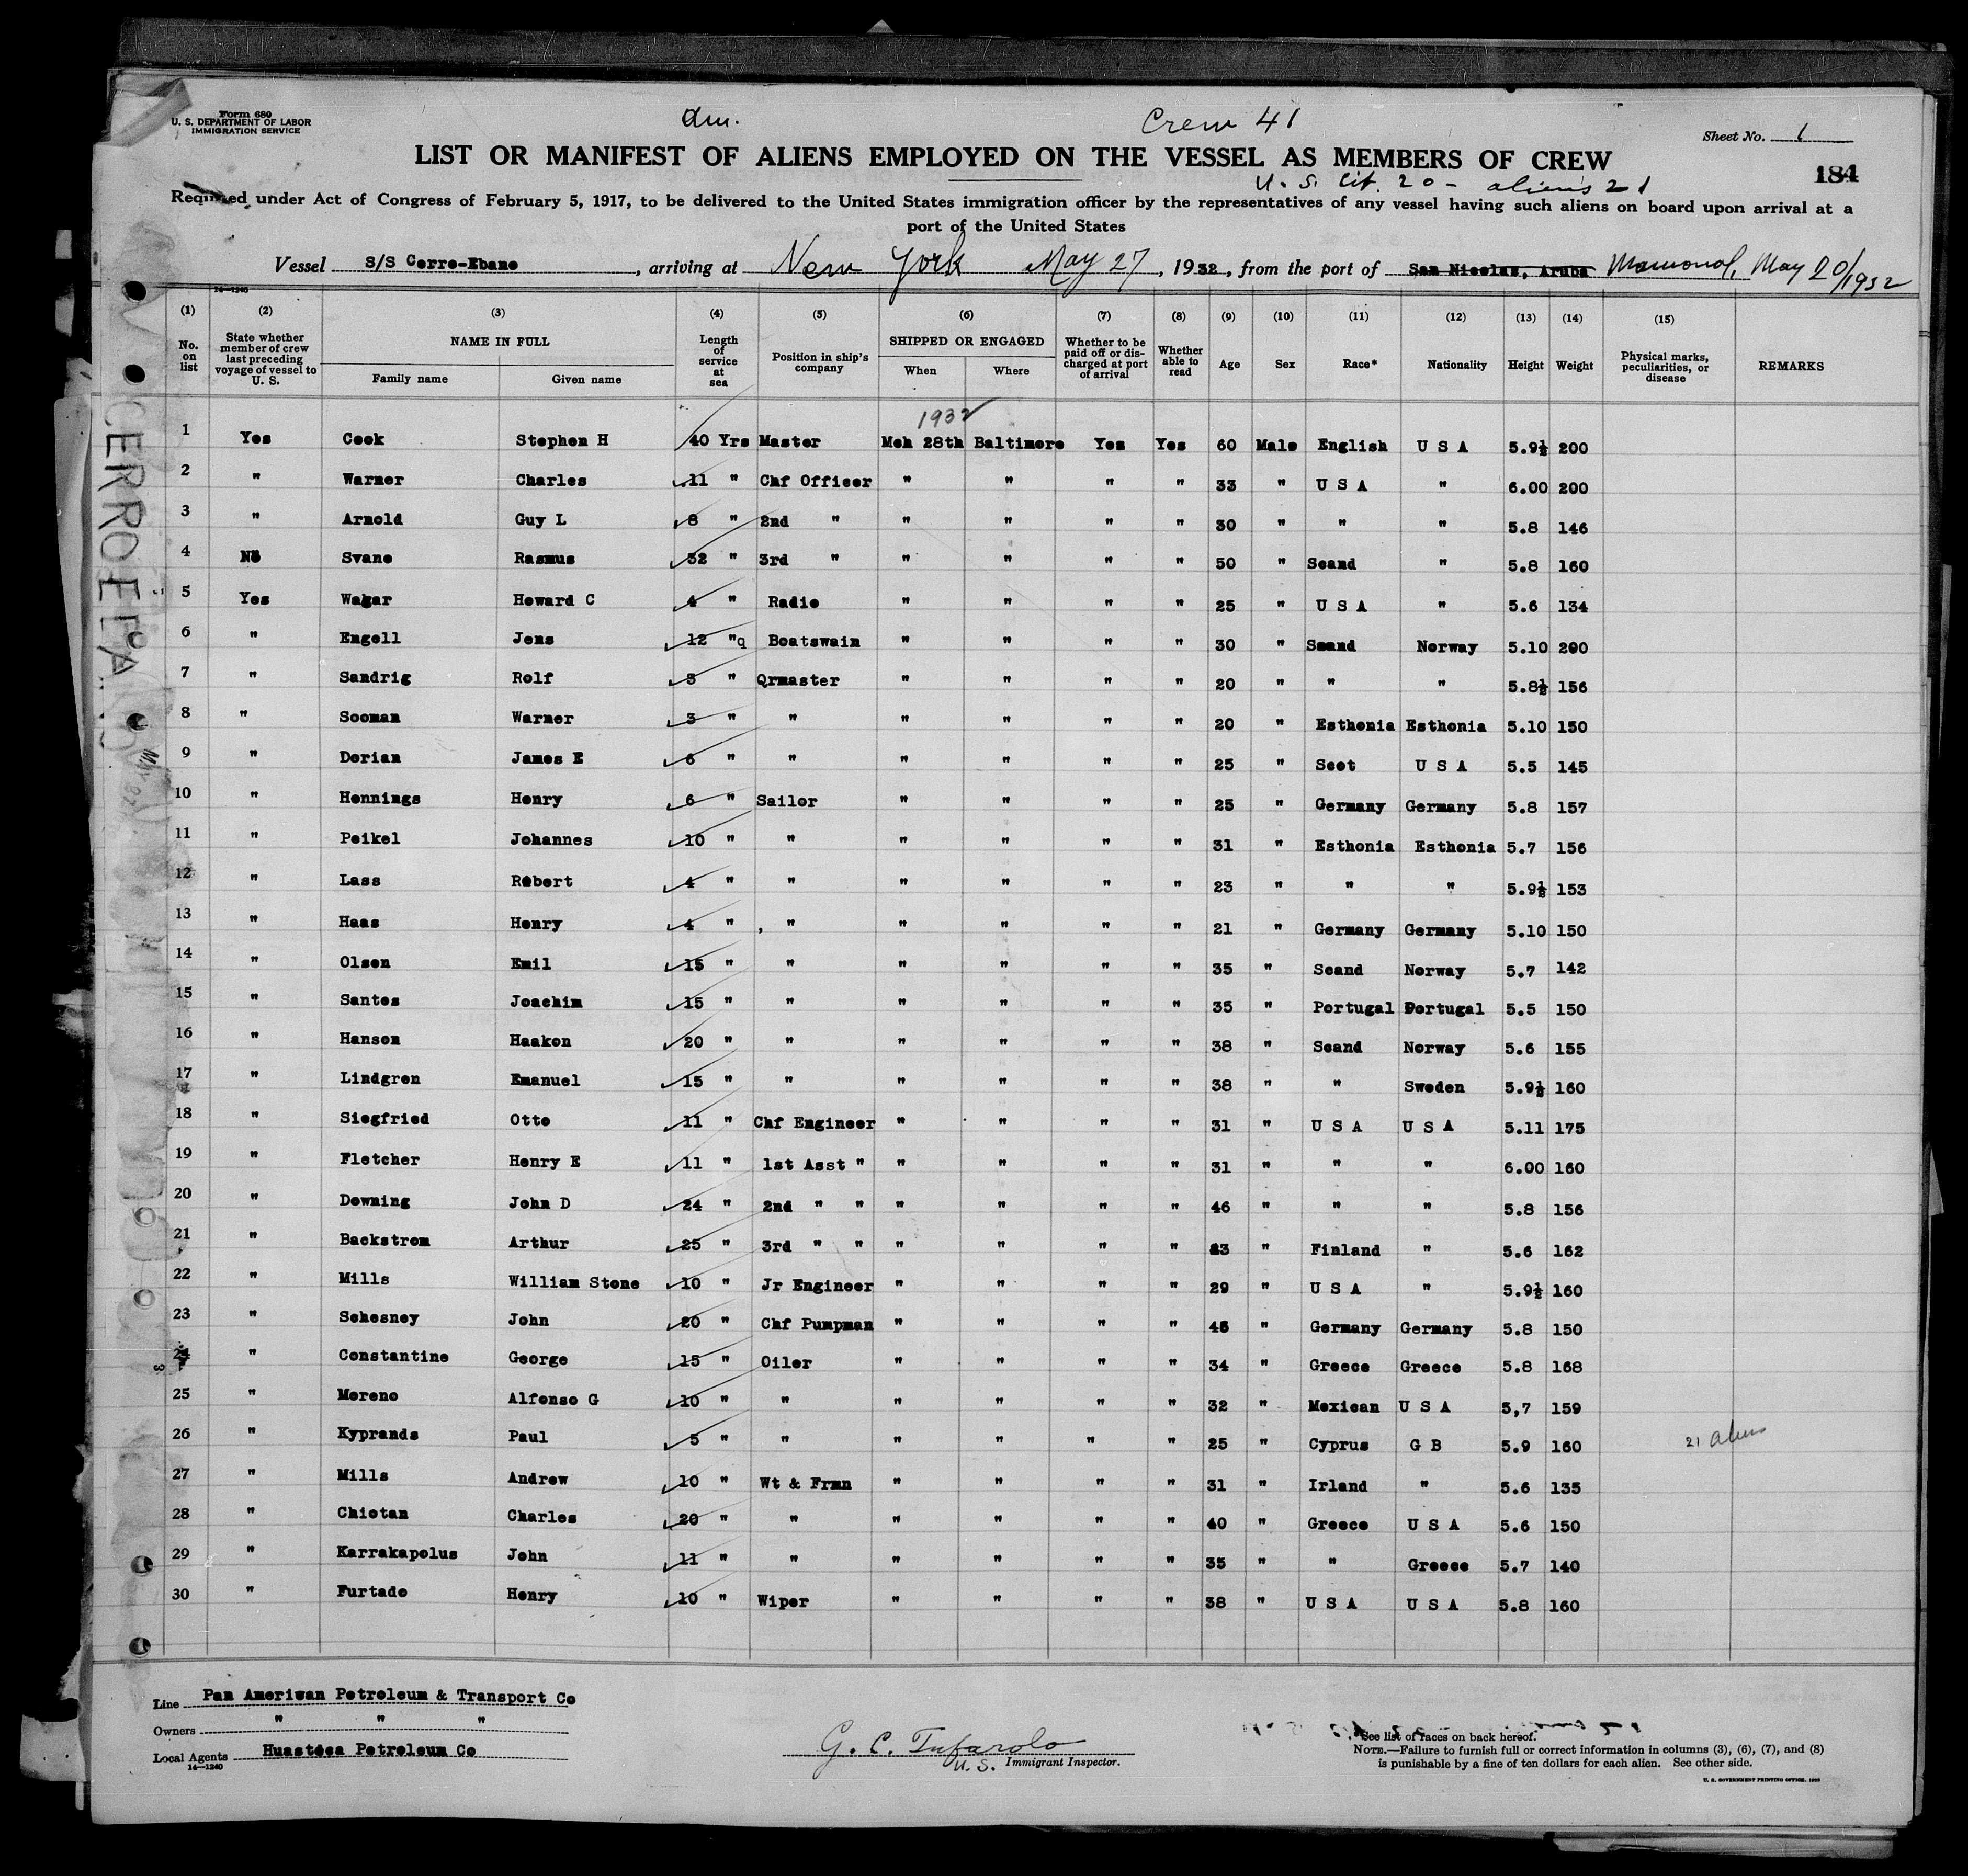 Form 680
U. S. DEPARTMENT OF LABOR
IMMIGRATION SERVICE
Crew 41
Sheet No. 1
LIST OR MANIFEST OF ALIENS EMPLOYED ON THE VESSEL AS MEMBERS OF CREW
184
U. S. Cit. 20 - aliens 21
Required under Act of Congress of February 5, 1917, to be delivered to the United States immigration officer by the representatives of any vessel having such aliens on board upon arrival at a
port of the United States
Vessel S/S Cerro-Ebano, arriving at New York May 27, 1932, from the port of San Nicolas, Aruba May 20/1932
14—1240
(1) (2) (3) (4) (5) (6) (7) (8) (9) (10) (11) (12) (13) (14) (15)
No. on list State whether member of crew last preceding voyage of vessel to U. S. NAME IN FULL Family name Given name Length of service at sea Position in ship's company SHIPPED OR ENGAGED When Where Whether to be paid off or discharged at port of arrival Whether able to read Age Sex Race* Nationality Height Weight Physical marks, peculiarities, or disease REMARKS
1932
1 Yes Cook Stephen H 40 Yrs Master Mch 28th Baltimore Yes Yes 60 Male English U S A 5.9½ 200
2 " Warner Charles 11 " Chf Officer " " " " 33 " U S A " 6.00 200
3 " Arnold Guy L 8 " 2nd " " " " " 30 " " " 5.8 146
4 No Svane Rasmus 32 " 3rd " " " " " 50 " Scand " 5.8 160
5 Yes Wagar Howard C 4 " Radio " " " " 25 " U S A " 5.6 134
6 " Engell Jens 12 "q Boatswain " " " " 30 " Scand Norway 5.10 200
7 " Sandrig Rolf 3 " Qrmaster " " " " 20 " " " 5.8½ 156
8 " Sooman Warner 3 " " " " " " 20 " Esthonia Esthonia 5.10 150
9 " Dorian James E 6 " " " " " " 25 " Scot U S A 5.5 145
10 " Hennings Henry 6 " Sailor " " " " 25 " Germany Germany 5.8 157
11 " Peikel Johannes 10 " " " " " " 31 " Esthonia Esthonia 5.7 156
12 " Lass Robert 4 " " " " " " 23 " " " 5.9½ 153
13 " Haas Henry 4 " , " " " " " 21 " Germany Germany 5.10 150
14 " Olsen Emil 15 " " " " " " 35 " Scand Norway 5.7 142
15 " Santos Joachim 15 " " " " " " 35 " Portugal Portugal 5.5 150
16 " Hanson Haakon 20 " " " " " " 38 " Scand Norway 5.6 155
17 " Lindgren Emanuel 15 " " " " " " 38 " " Sweden 5.9½ 160
18 " Siegfried Otto 11 " Chf Engineer " " " " 31 " U S A U S A 5.11 175
19 " Fletcher Henry E 11 " 1st Asst " " " " " 31 " " " 6.00 160
20 " Downing John D 24 " 2nd " " " " " " 46 " " " 5.8 156
21 " Backstrom Arthur 25 " 3rd " " " " " " 23 " Finland " 5.6 162
22 " Mills William Stone 10 " Jr Engineer " " " " 29 " U S A " 5.9½ 160
23 " Schesney John 20 " Chf Pumpman " " " " 46 " Germany Germany 5.8 150
24 " Constantine George 15 " Oiler " " " " 34 " Greece Greece 5.8 168
25 " Moreno Alfonso G 10 " " " " " " 32 " Mexican U S A 5,7 159
26 " Kyprands Paul 5 " " " " " " 25 " Cyprus G B 5.9 160 21 aliens
27 " Mills Andrew 10 " Wt & Frmn " " " " 31 " Irland " 5.6 135
28 " Chiotan Charles 20 " " " " " " 40 " Greece U S A 5.6 150
29 " Karrakapolus John 11 " " " " " " 35 " " Greece 5.7 140
30 " Furtado Henry 10 " Wiper " " " " 38 " U S A U S A 5.8 160
Line Pan Ameriwan Petroleum & Transport Co
Owners " " "
Local Agents Huasteca Petroleum Co
14—1240
G. C. Tufarolo
U. S. Immigrant Inspector.
*See list of races on back hereof.
NOTE.—Failure to furnish full or correct information in columns (3), (6), (7), and (8)
is punishable by a fine of ten dollars for each alien. See other side.
U. S. GOVERNMENT PRINTING OFFICE